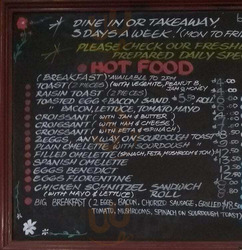 DINE IN OR TAKEAWAY
5 DAYS A WEEK! (MON TO FRI
PLEASE CHECK OUR FRESH
PREPARED DAILY SPE
HOT FOOD
(BREAKFAST) *AVAILABLE TO 2PM
TOAST (2 PIECES) (WITH VEGEMITE, PEANUT B,
JAM & HONEY)
RAISIN TOAST (2 PIECES)
TOASTED EGG & BACON SAND. ROLL
" BACON, LETUC, TOMATO, MAYO
CROISSANT (WITH JAM & BUTTER)
CROISSANT (WITH HAM & CHEESE)
CROISSANT (WITH FETA & SPINACH)
EGGS ANYWAY ON SOURDOUGH TOAST
PLAIN OMELETTE WITH SOURDOUGH
FILLED OMELETTE (SPINACH, FETA, MUSHROOM & TOM)
SPANISH OMELETTE
EGGS BENEDICT
EGGS FLORENTINE
CHICKEN SCHNITZEL SANDWICH
(WITH MAYO & LETTUCE) ROLL
BIG BREAKFAST (2 EGGS, BACON, CHORIZO SAUSAGE, GRILLED
TOMATO, MUSHROOMS, SPINACH ON SOURDOUGH TOAST)